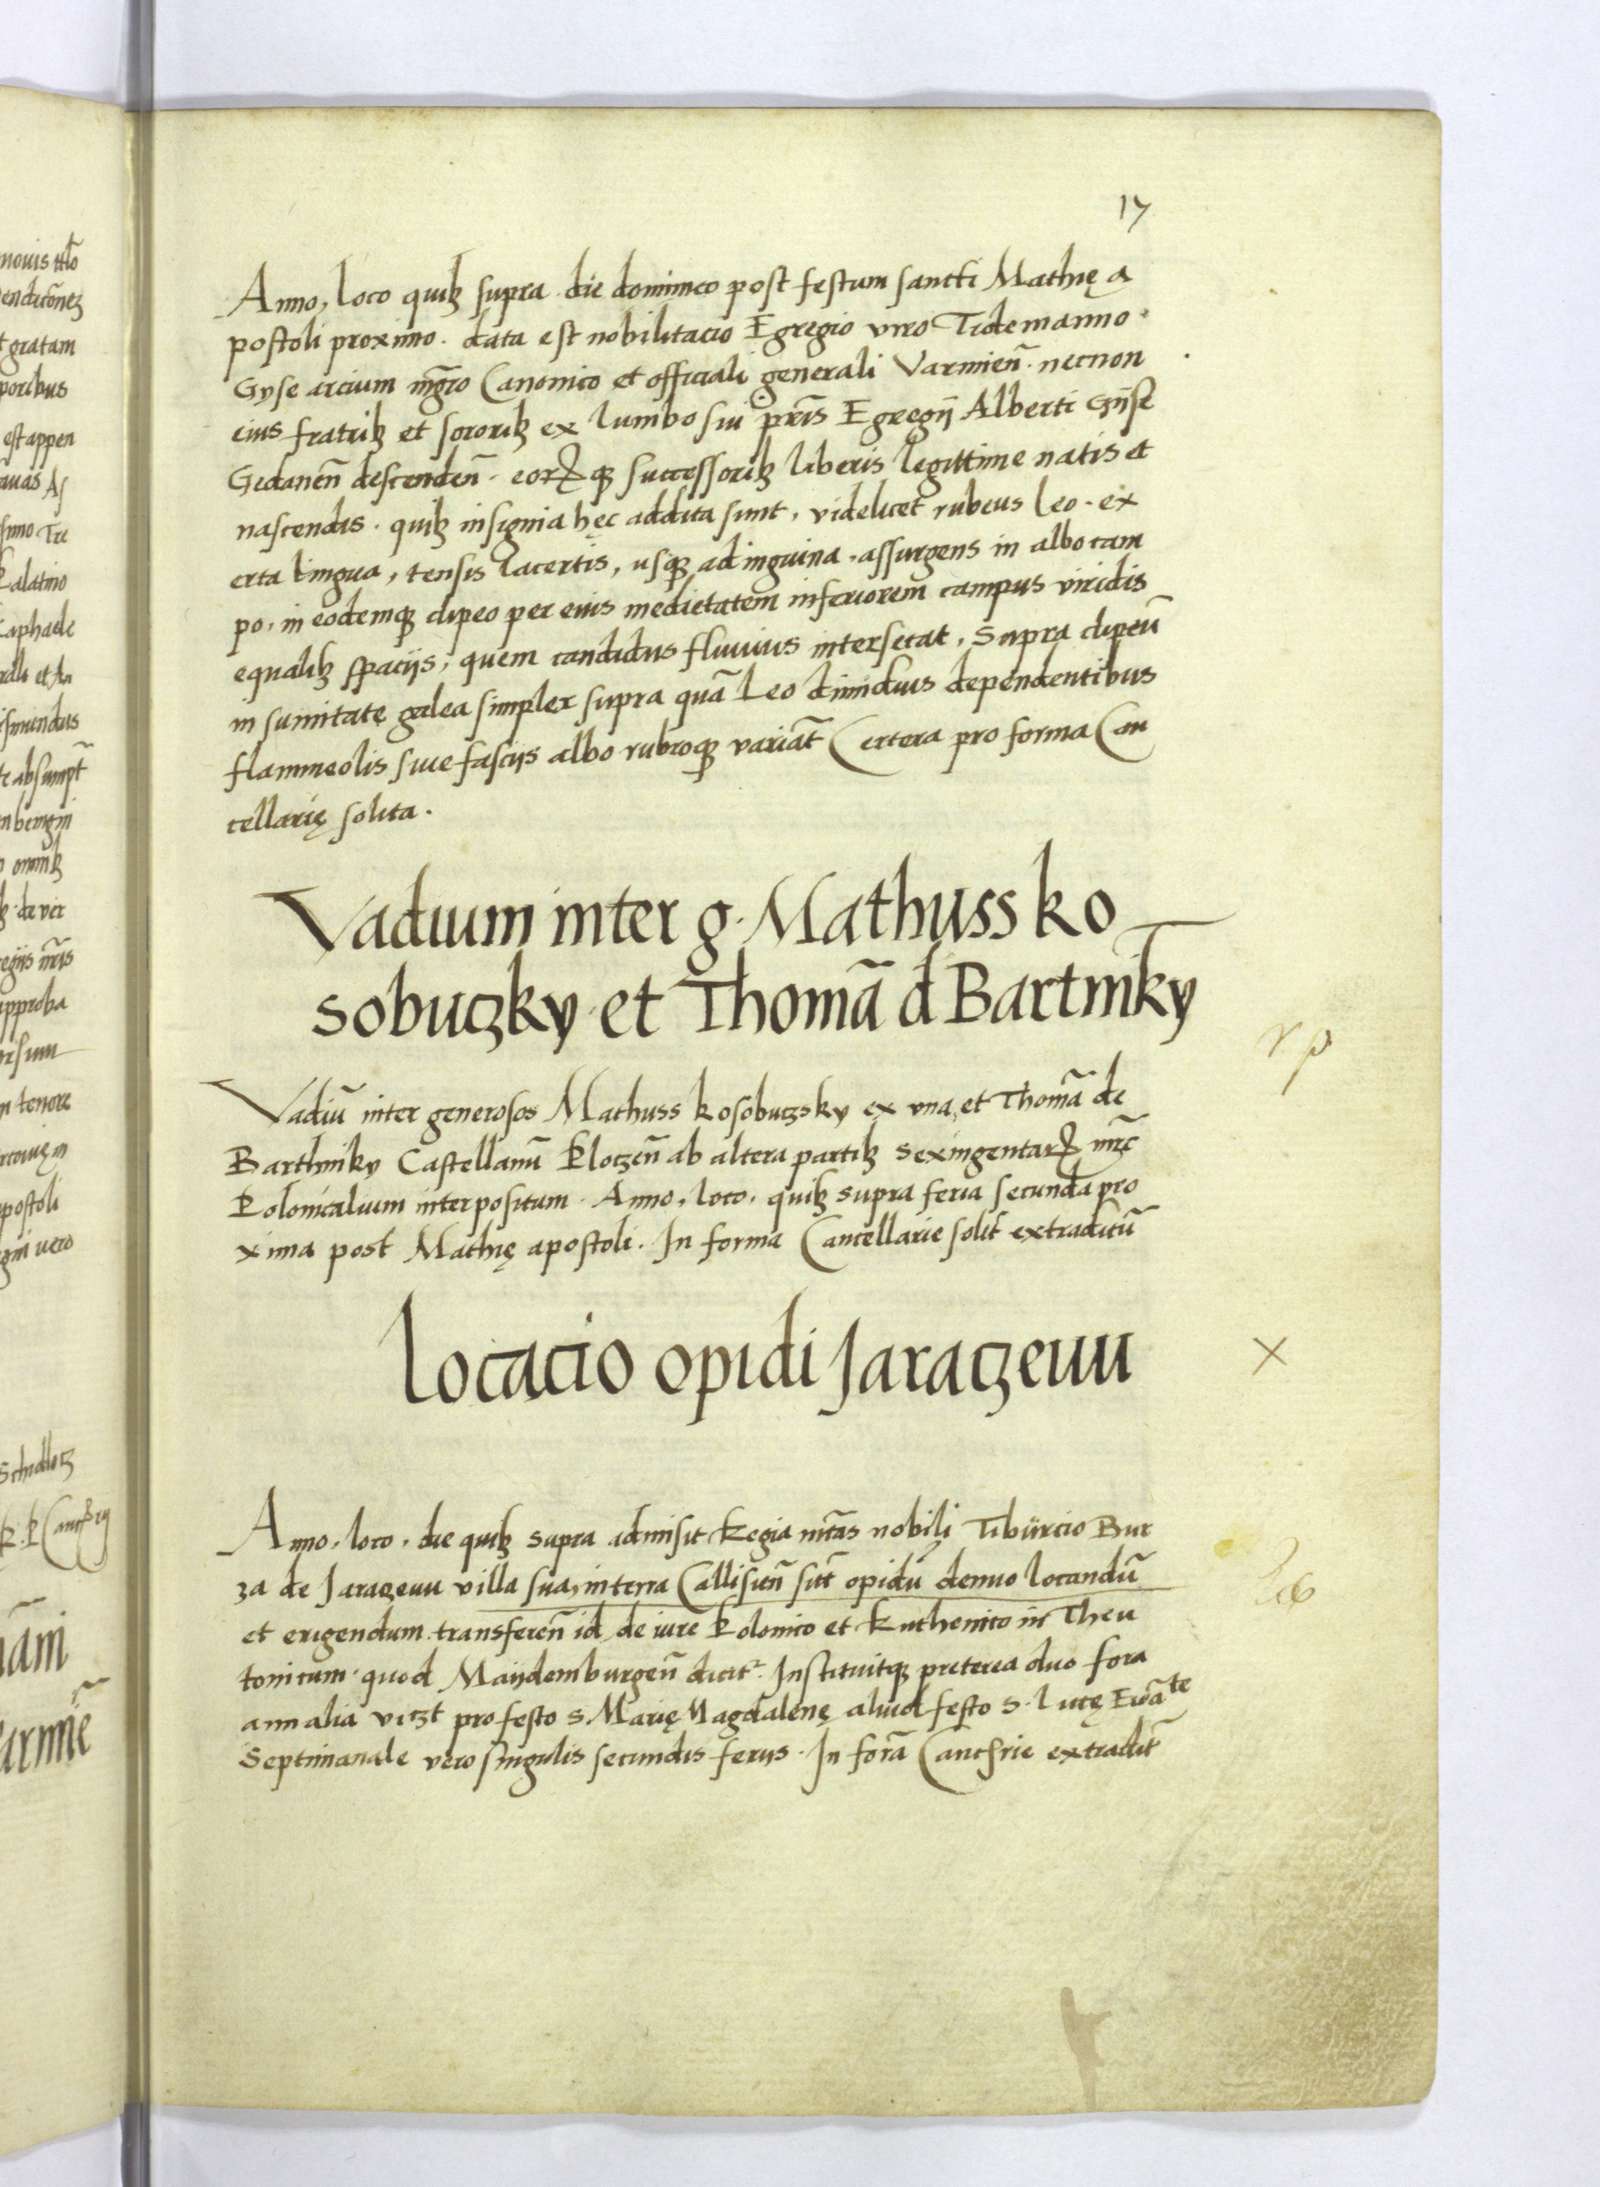 17
Anno, loco quibꝫ supra die dominico post festum sancti Mathię a
postoli proximo. data est nobilitacio Egregio viro Tidemanno
Gyse arcium mgr̄o Canonico et officiali generali Varmien̄. necnon
eius fratribꝫ et sororibꝫ ex lumbo sui pr̄is Egregij Alberti Gijse
Gedanen̄ descenden̄. eorꝝqꝫ successoribꝫ liberis legittime natis et
nascendis. quibꝫ insignia hęc addita sunt, videlicet rubeus leo. ex
erta lingua, tensis lacertis, usqꝫ ad inguina. assurgens in albo cam
po, in eodemqꝫ clipeo per eius medietatem inferiorem campus viridis
equalibꝫ spacijs, quem candidus fluuius intersecat, Supra clipeū
in sumitatę galea simplex supra quā Leo dimidius dependentibus
flammeolis siue fascijs albo rubroqꝫ variat̄ Cetera pro forma Can
cellarię solita.
Vadium inter g. Mathuss ko
sobuczky et Thomā d Bartniky
Vadiū inter generosos Mathuss kosobuczsky ex vna, et Thomā de
Barthniky Castellanū Ploczen̄ ab altera partibꝫ sexingentarꝝ mr̄c
Polonicalium interpositum. Anno, loco, quibꝫ supra feria secunda pro
xima post Mathię apostoli. In forma Cancellarie solit̄ extraditū
Locacio opidi Jaraczeuu
Anno, loco, die quibꝫ supra admisit Regia mt̄as nobili Tiburcio Bur
za de Jaraczeuu villa sua, in terra Callisien̄ sit̄ opidū denuo locandū
et erigendum transferen̄ id de iure Polonico et Ruthenico in Theu
tonicum quod Maijdemburgen̄ dicit². Instituitqꝫ preterea duo fora
annalia viczt pro festo s. Marię Magdalenę aliud festo s. Lucę Euāte
Septimanale vero singulis secundis ferijs. In forā Cancrie extradit̄